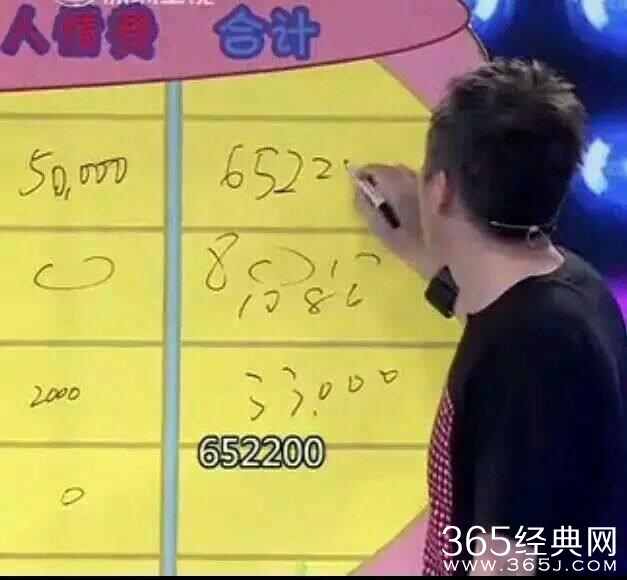 人情费 合计
50,000 6522
2000 33,000
0
652200
365经典网
WWW.365J.COM